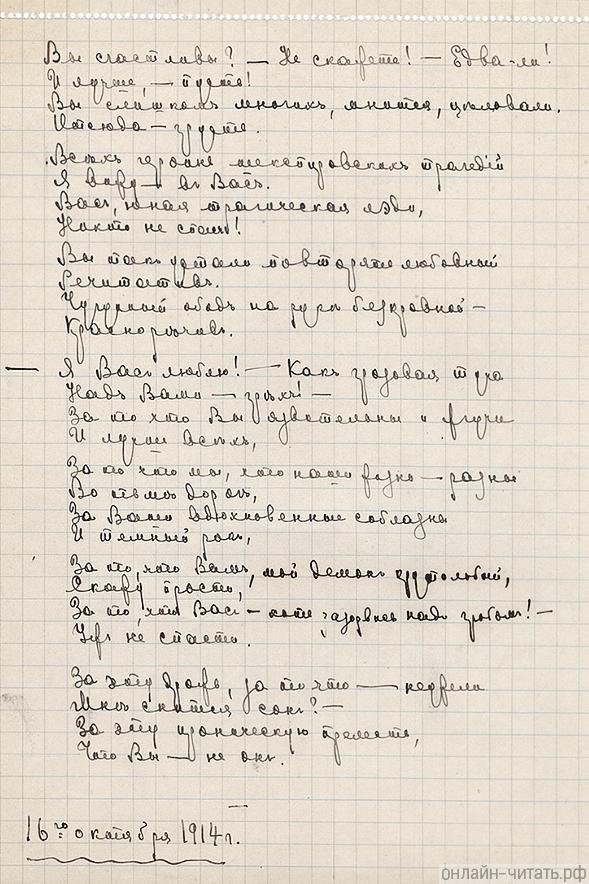 Вы счастливы? — Не скажете! — Едва-ли!
И лучше, — пусть!
Вы слишкомъ многихъ, мнится, цѣловали.
Отсюда — грусть.
Всѣхъ героинь шекспировскихъ трагедій
Я вижу — въ Васъ.
Васъ, юная трагическая лэди,
Никто не спасъ!
Вы такъ устали повторять любовный
Речитативъ.
Чугунный ободъ на рукѣ безкровной —
Краснорѣчивъ.
— Я Васъ люблю! — Какъ грозовая туча
Надъ Вами — грѣхъ! —
За то что Вы язвительны и жгучи
И лучше всѣхъ,
За то что мы, что наши жизни — разны
Во тьмѣ дорогъ,
За Ваши вдохновенные соблазны
И темный рокъ,
За то, что Вамъ, мой демонъ крутолобый,
Скажу прости,
За то, что Васъ — хоть разорвись надъ гробомъ! —
Ужъ не спасти.
За эту дрожь, за то что — неужели
Мнѣ снится сонъ? —
За эту ироническую прелесть,
Что Вы — не онъ.
16го октября 1914г.
онлайн-читать.рф